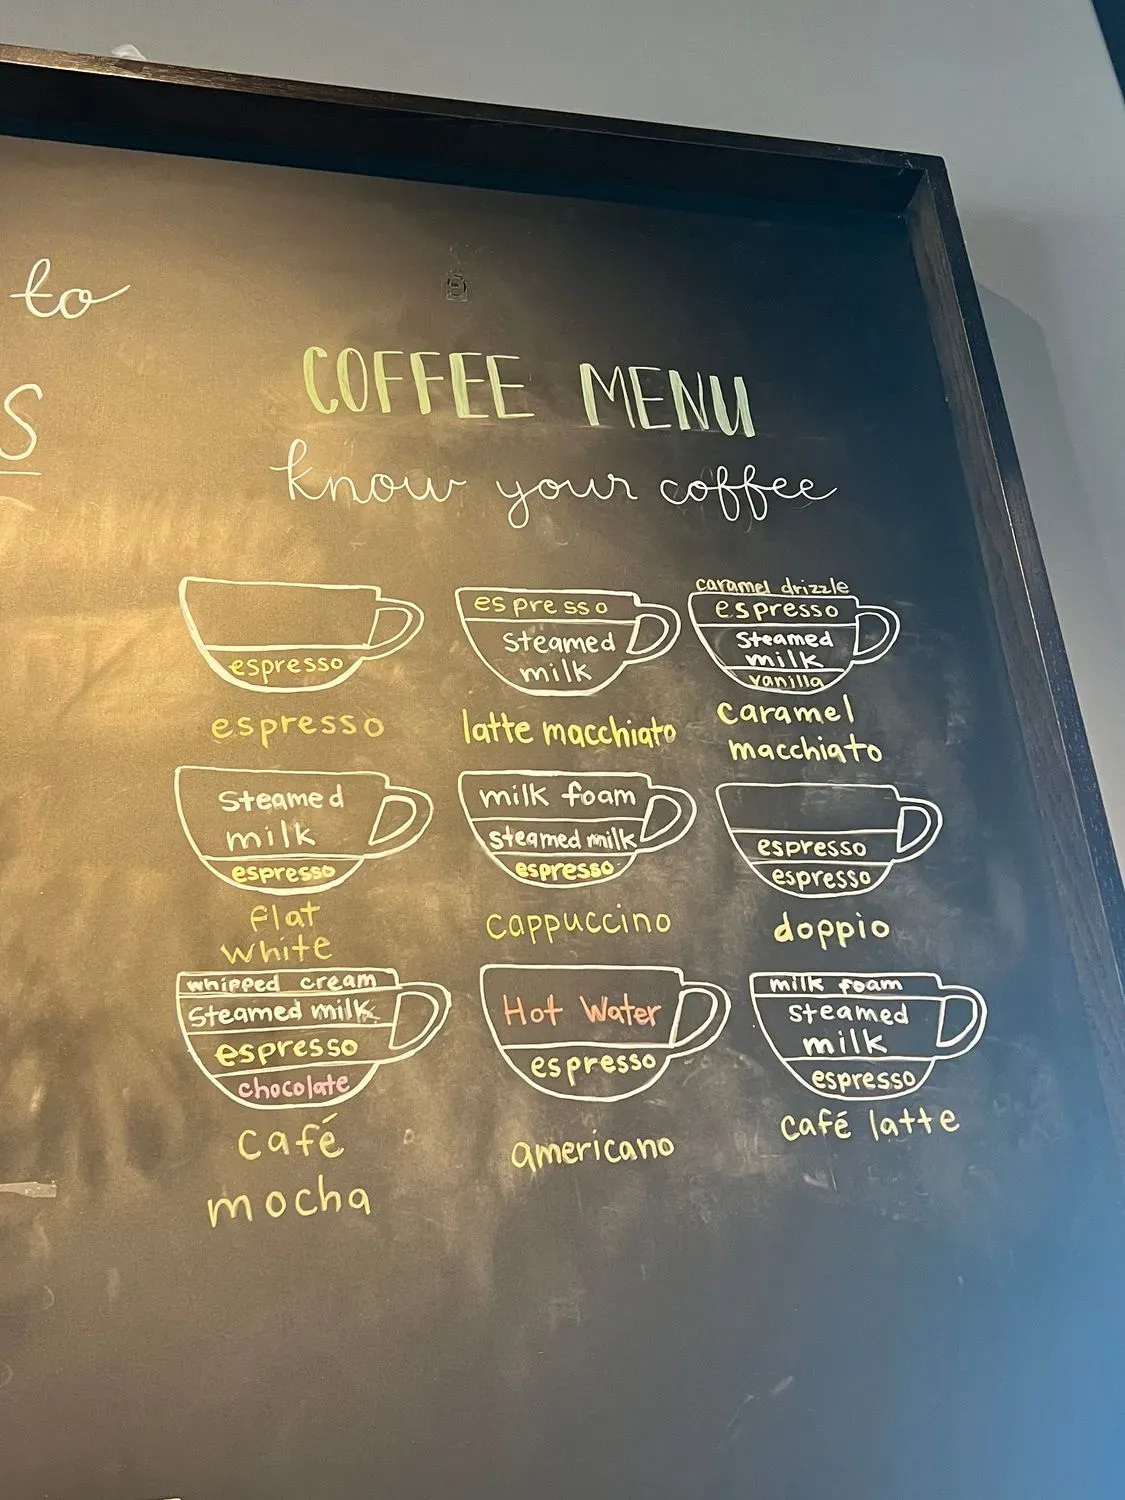 to
S
COFFEE MENU
know your coffee
espresso
espresso
espresso
steamed
milk
latte macchiato
caramel drizzle
espresso
steamed
milk
vanilla
caramel
macchiato
steamed
milk
espresso
flat
white
milk foam
steamed milk
espresso
cappuccino
espresso
espresso
doppio
whipped cream
steamed milk
espresso
chocolate
café
mocha
Hot Water
espresso
americano
milk foam
steamed
milk
espresso
café latte